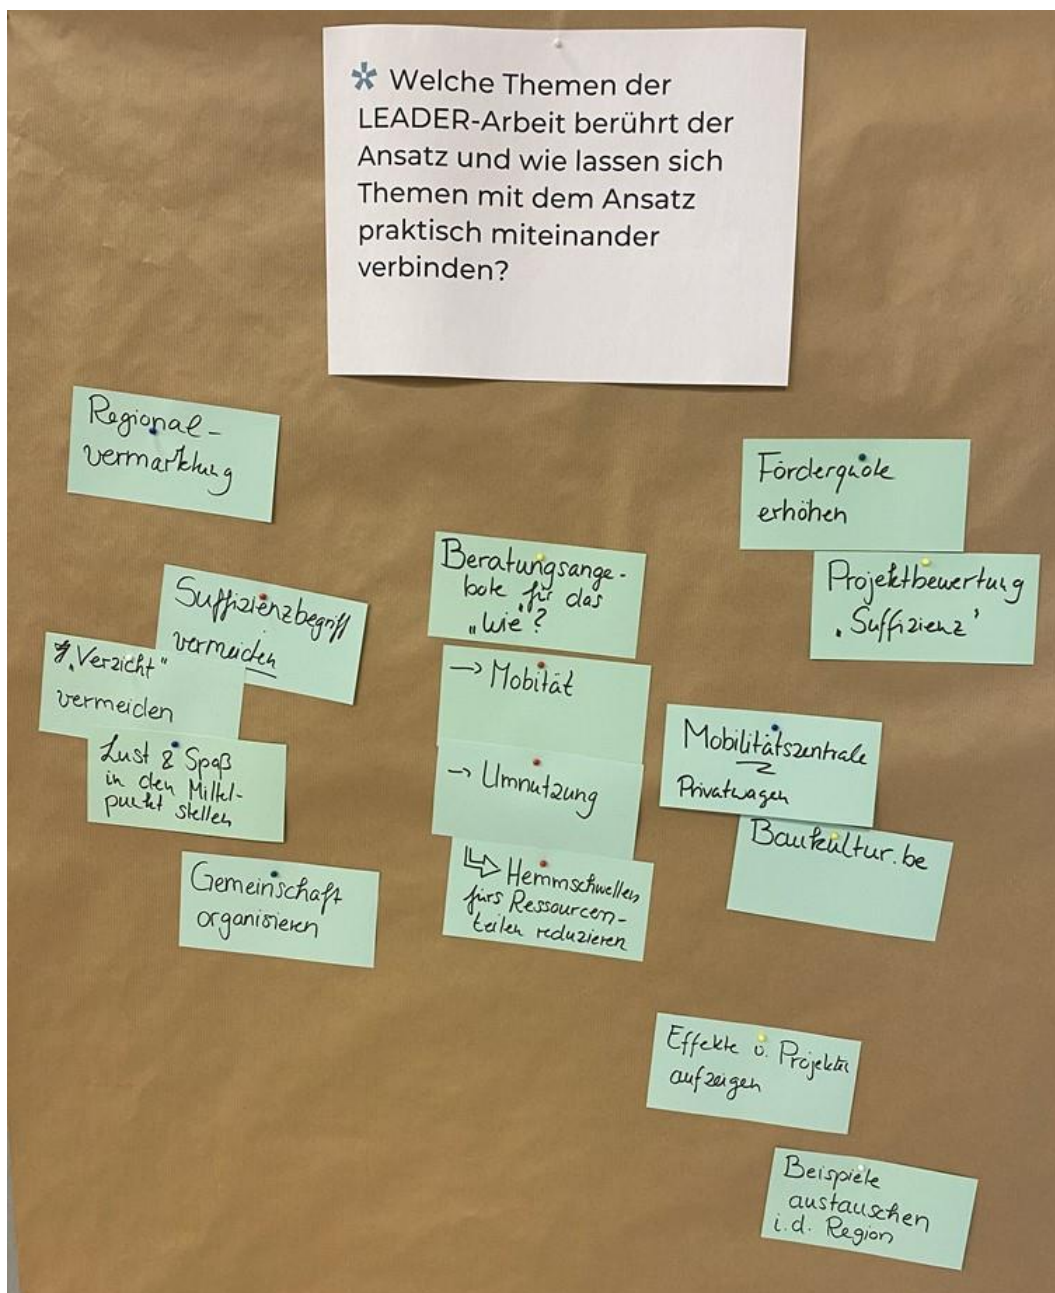 * Welche Themen der
LEADER-Arbeit berührt der
Ansatz und wie lassen sich
Themen mit dem Ansatz
praktisch miteinander
verbinden?
Regional-
vermarktung
Suffizienzbegriff
vermeiden
"Verzicht"
vermeiden
Lust & Spaß
in den Mittel-
punkt stellen
Gemeinschaft
organisieren
Beratungsange-
bote für das
"Wie"?
→ Mobilität
→ Umnutzung
Hemmschwellen
fürs Ressourcen-
teilen reduzieren
Förderquote
erhöhen
Projektbewertung
"Suffizienz"
Mobilitätszentrale
Privatwagen
Baukultur.be
Effekte v. Projekten
aufzeigen
Beispiele
austauschen
i.d. Region